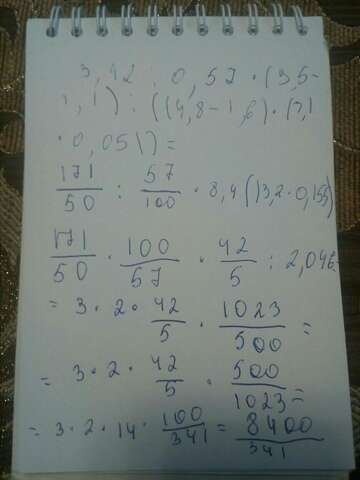 3,42 : 0,57 · (3,5-
1,1) : ((4,8-1,6) · (3,1
· 0,05)) =
171/50 : 57/100 · 8,4 (13,2 · 0,155)
171/50 · 100/57 · 42/5 : 2,046=
= 3 · 2 · 42/5 · 1023/500 =
= 3 · 2 · 42/5 · 500/1023 =
= 3 · 2 · 14 · 100/341 = 8400/341